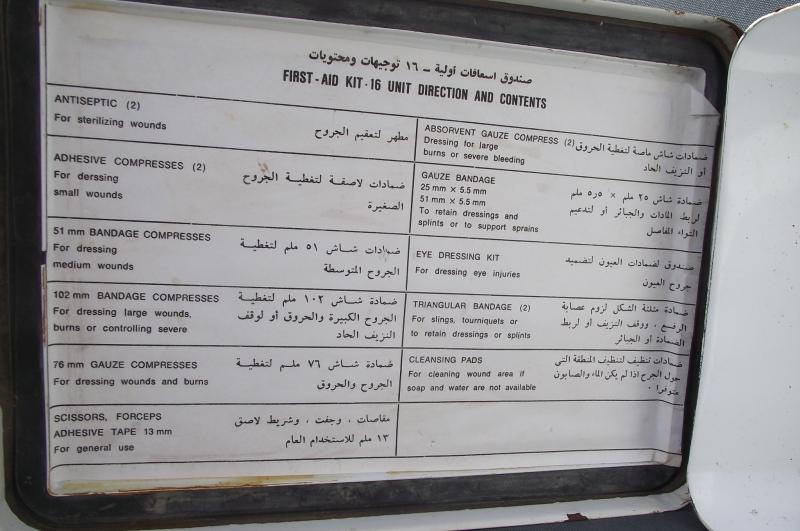 صندوق اسعافات أولية - ١٦ توجيهات ومحتويات
FIRST-AID KIT·16 UNIT DIRECTION AND CONTENTS
ANTISEPTIC (2)
For sterilizing wounds
مطهر لتعقيم الجروح
ADHESIVE COMPRESSES (2)
For derssing
small wounds
ضمادات لاصقة لتغطية الجروح
الصغيرة
51 mm BANDAGE COMPRESSES
For dressing
medium wounds
ضمادات شاش ٥١ ملم لتغطية
الجروح المتوسطة
102 mm BANDAGE COMPRESSES
For dressing large wounds,
burns or controlling severe
ضمادة شاش ١٠٢ ملم لتغطية
الجروح الكبيرة والحروق أو لوقف
النزيف الحاد
76 mm GAUZE COMPRESSES
For dressing wounds and burns
ضمادة شاش ٧٦ ملم لتغطية
الجروح والحروق
SCISSORS, FORCEPS
ADHESIVE TAPE 13 mm
For general use
مقاصات ، وجفت ، وشريط لاصق
١٣ ملم للاستخدام العام
ABSORVENT GAUZE COMPRESS (2)
Dressing for large
burns or severe bleeding
ضمادات شاش ماصة لتغطية الحروق
أو النزيف الحاد
GAUZE BANDAGE
25 mm × 5.5 mm
51 mm × 5.5 mm
To retain dressings and
splints or to support sprains
ضمادة شاش ٢٥ ملم × ٥ر٥ ملم
لربط المادات والجبائر أو لتدعيم
التواء المفاصل
EYE DRESSING KIT
For dressing eye injuries
صندوق لضمادات العيون لتضميد
جروح العيون
TRIANGULAR BANDAGE (2)
For slings, tourniquets or
to retain dressings or splints
ضمادة مثلثة الشكل لزوم عصابة
الرفع ، ووقف النزيف أو لربط
الضمادة أو الجبائر
CLEANSING PADS
For cleaning wound area if
soap and water are not available
ضمادات تنظيف لتنظيف المنطقة التي
حول الجرح اذا لم يكن الماء والصابون
متوفرا ·